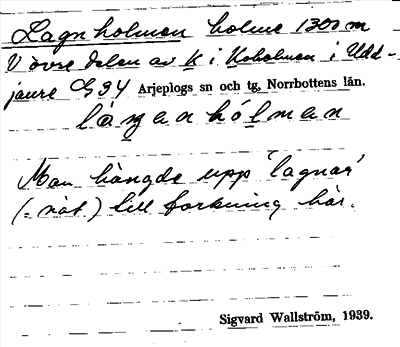 Lagnholmen holme 1300 m
V övre delen av K i Koholmen i Udd-
jaure G 34 Arjeplogs sn och tg, Norrbottens län.
låŋanhólman
Man hängde upp 'lagnar'
(= nät) till torkning här.
Sigvard Wallström, 1939.